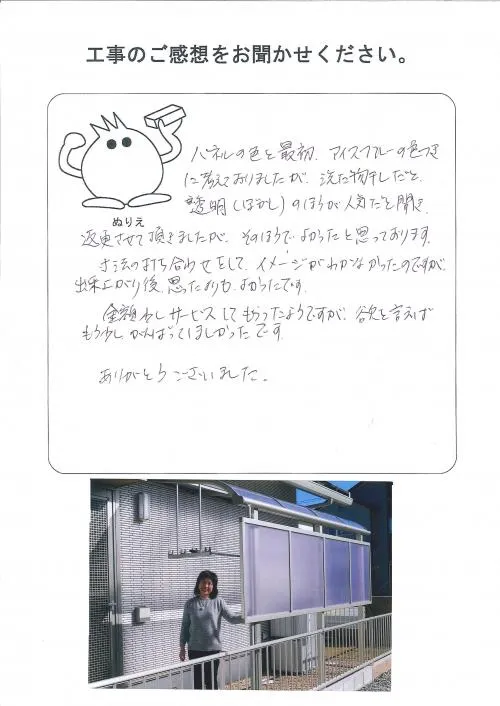 工事のご感想をお聞かせください。
ぬりえ
パネルの色を最初、アイスブルーの色つき
に考えておりましたが、洗たく物干しだと、
透明(ぼかし)のほうが人気だと聞き、
変更させて頂きましたが、そのほうでよかったと思っております。
寸法の打ち合わせをして、イメージがわかなかったのですが、
出来上がり後、思ったより、よかったです。
金額少しサービスしてもらったようですが、欲を言えば
もう少しがんばってほしかったです。
ありがとうございました。